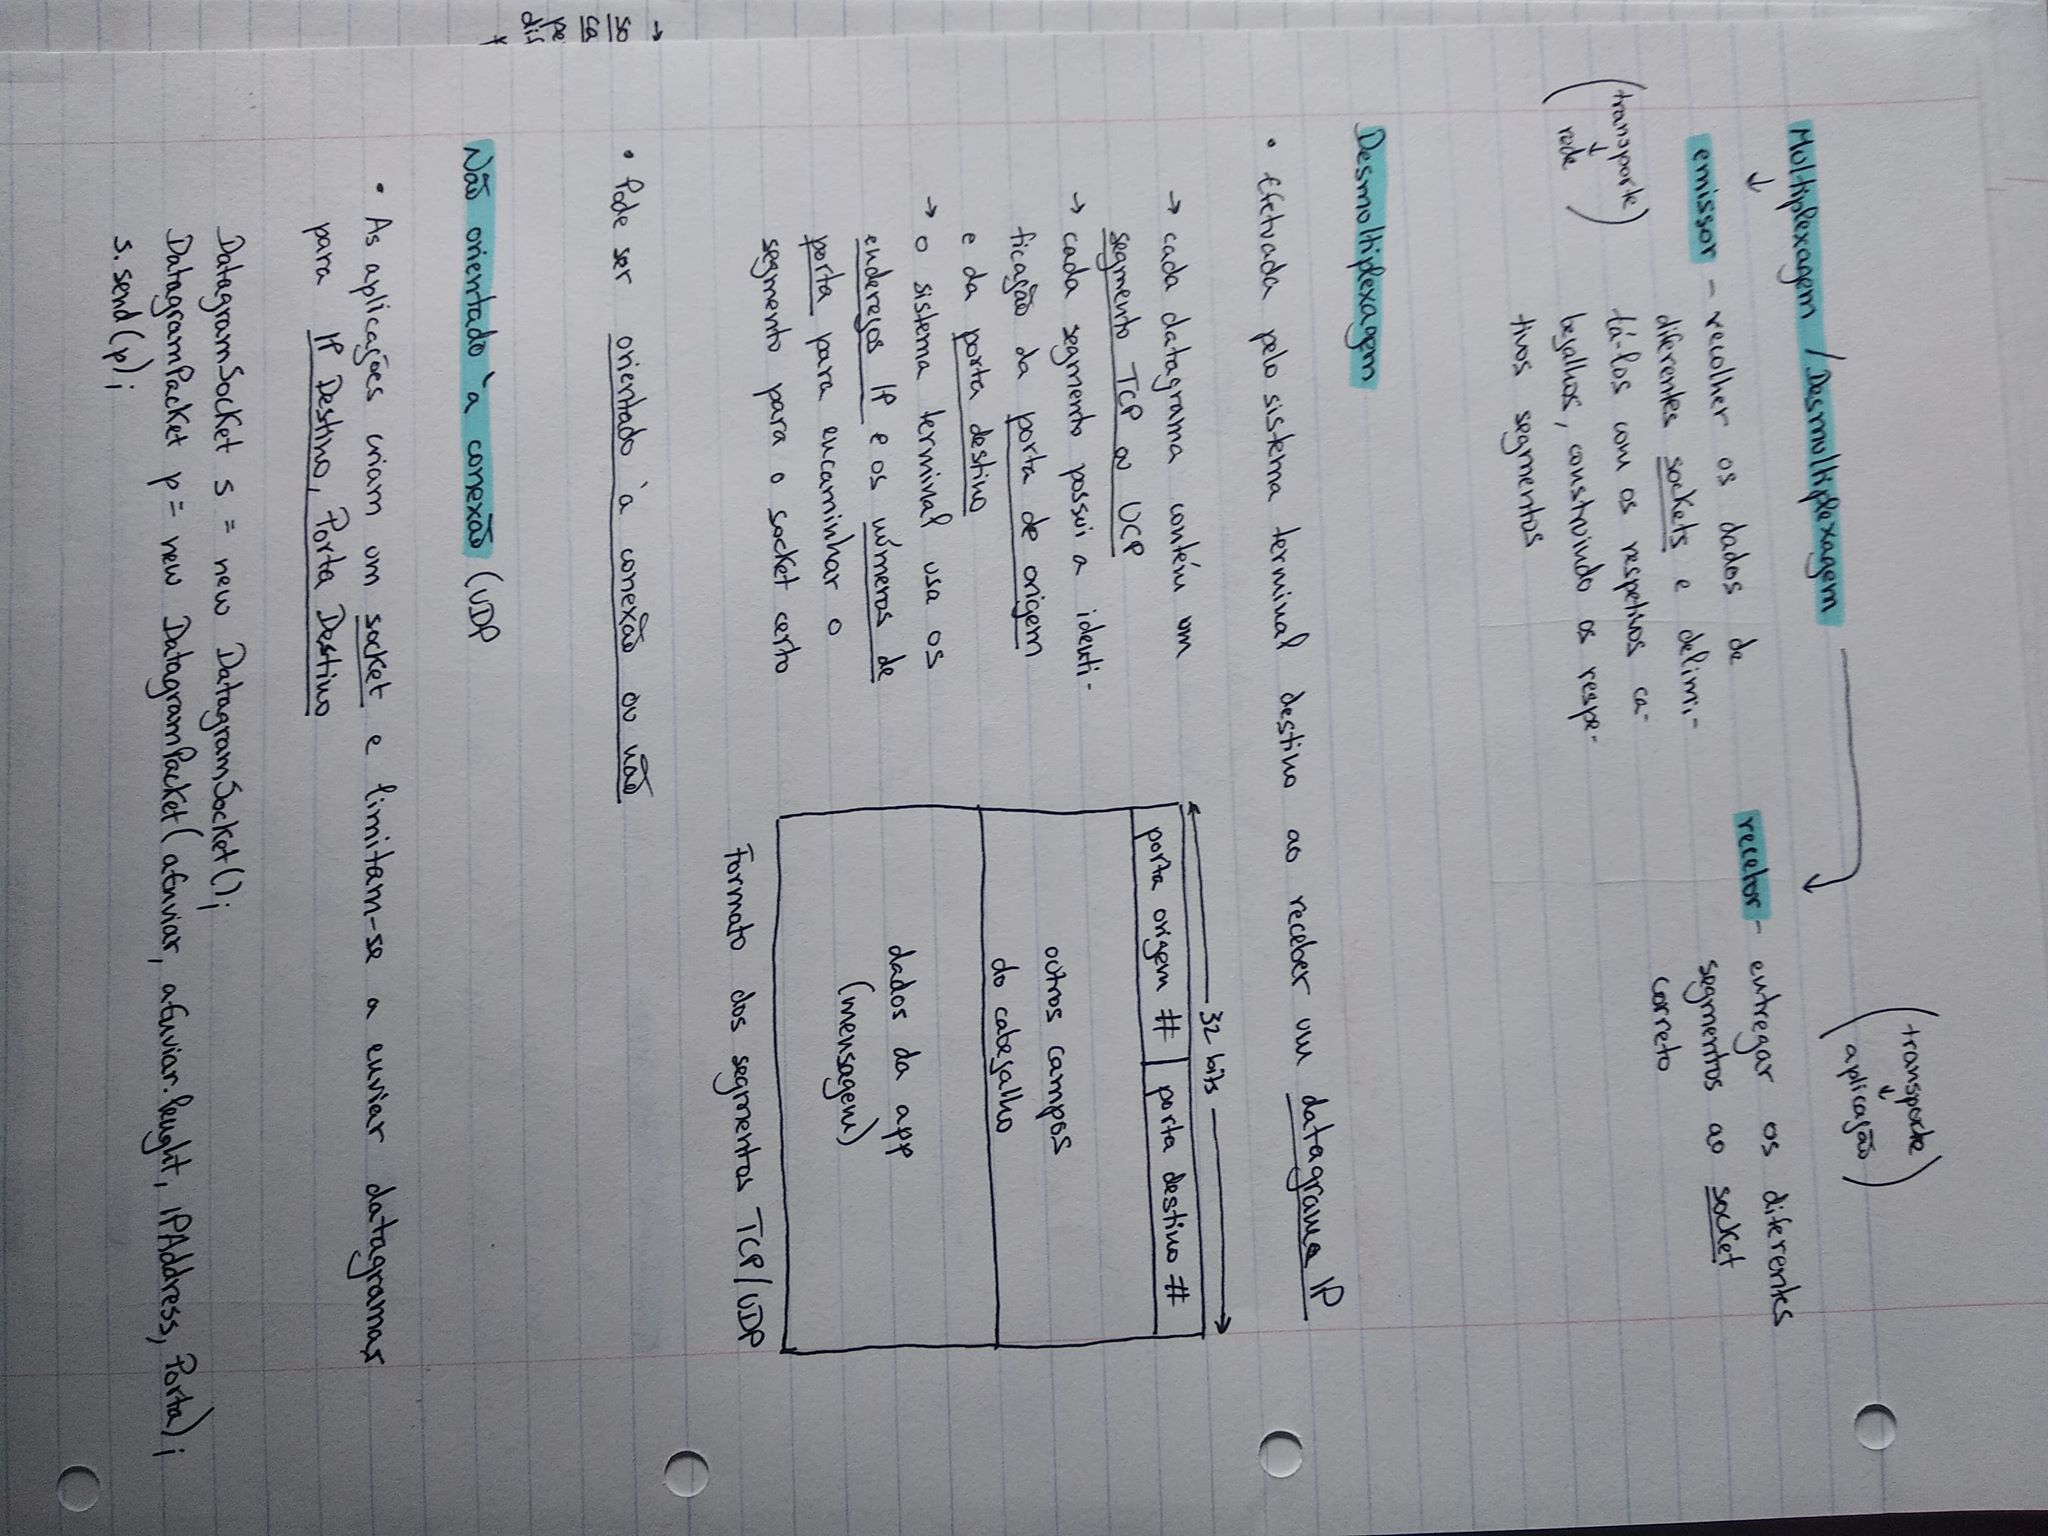 (transporte
↓
aplicação)
Multiplexagem / Desmultiplexagem
↓
emissor - recolher os dados de
diferentes sockets e delimi-
tá-los com os respetivos ca-
beçalhos, construindo os respe-
tivos segmentos
(transporte
↓
rede)
recetor - entregar os diferentes
segmentos ao socket
correto
Desmultiplexagem
• Efetuada pelo sistema terminal destino ao receber um datagrama IP
→ cada datagrama contém um
segmento TCP ou UCP
→ cada segmento possui a identi-
ficação da porta de origem
e da porta destino
→ o sistema terminal usa os
endereços IP e os números de
porta para encaminhar o
segmento para o socket certo
32 bits
porta origem # | porta destino #
outros campos
do cabeçalho
dados da app
(mensagem)
Formato dos segmentos TCP/UDP
• Pode ser orientado à conexão ou não
→
so
ca
pe
dif
Não orientado à conexão (UDP
• As aplicações criam um socket e limitam-se a enviar datagramas
para IP Destino, Porta Destino
DatagramSocket s = new DatagramSocket();
DatagramPacket p = new DatagramPacket(aEnviar, aEnviar.lenght, IPAddress, Porta);
s.send(p);